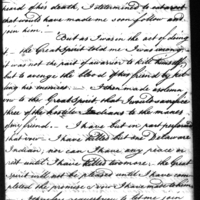 friend of his death, I determined to
would have made me soon follow and
join him."
"But as I was in the act of doing
the Great Spirit told me I was wrong
was not the part of a warrior to kill himself,
but to avenge the blood of his friend by kill
ing his enemies. — I then made a solemn
to the Great Spirit that I would sacrifice
three of the hostile Indians to the manes
my friend. — I have but in part performed
that vow. I have killed but one Delaware
Indian, nor can I have any peace or
rest until I have killed two more. the Great
Spirit will not be pleased until I have com
pleted the promise Now I have made to him
to let me join